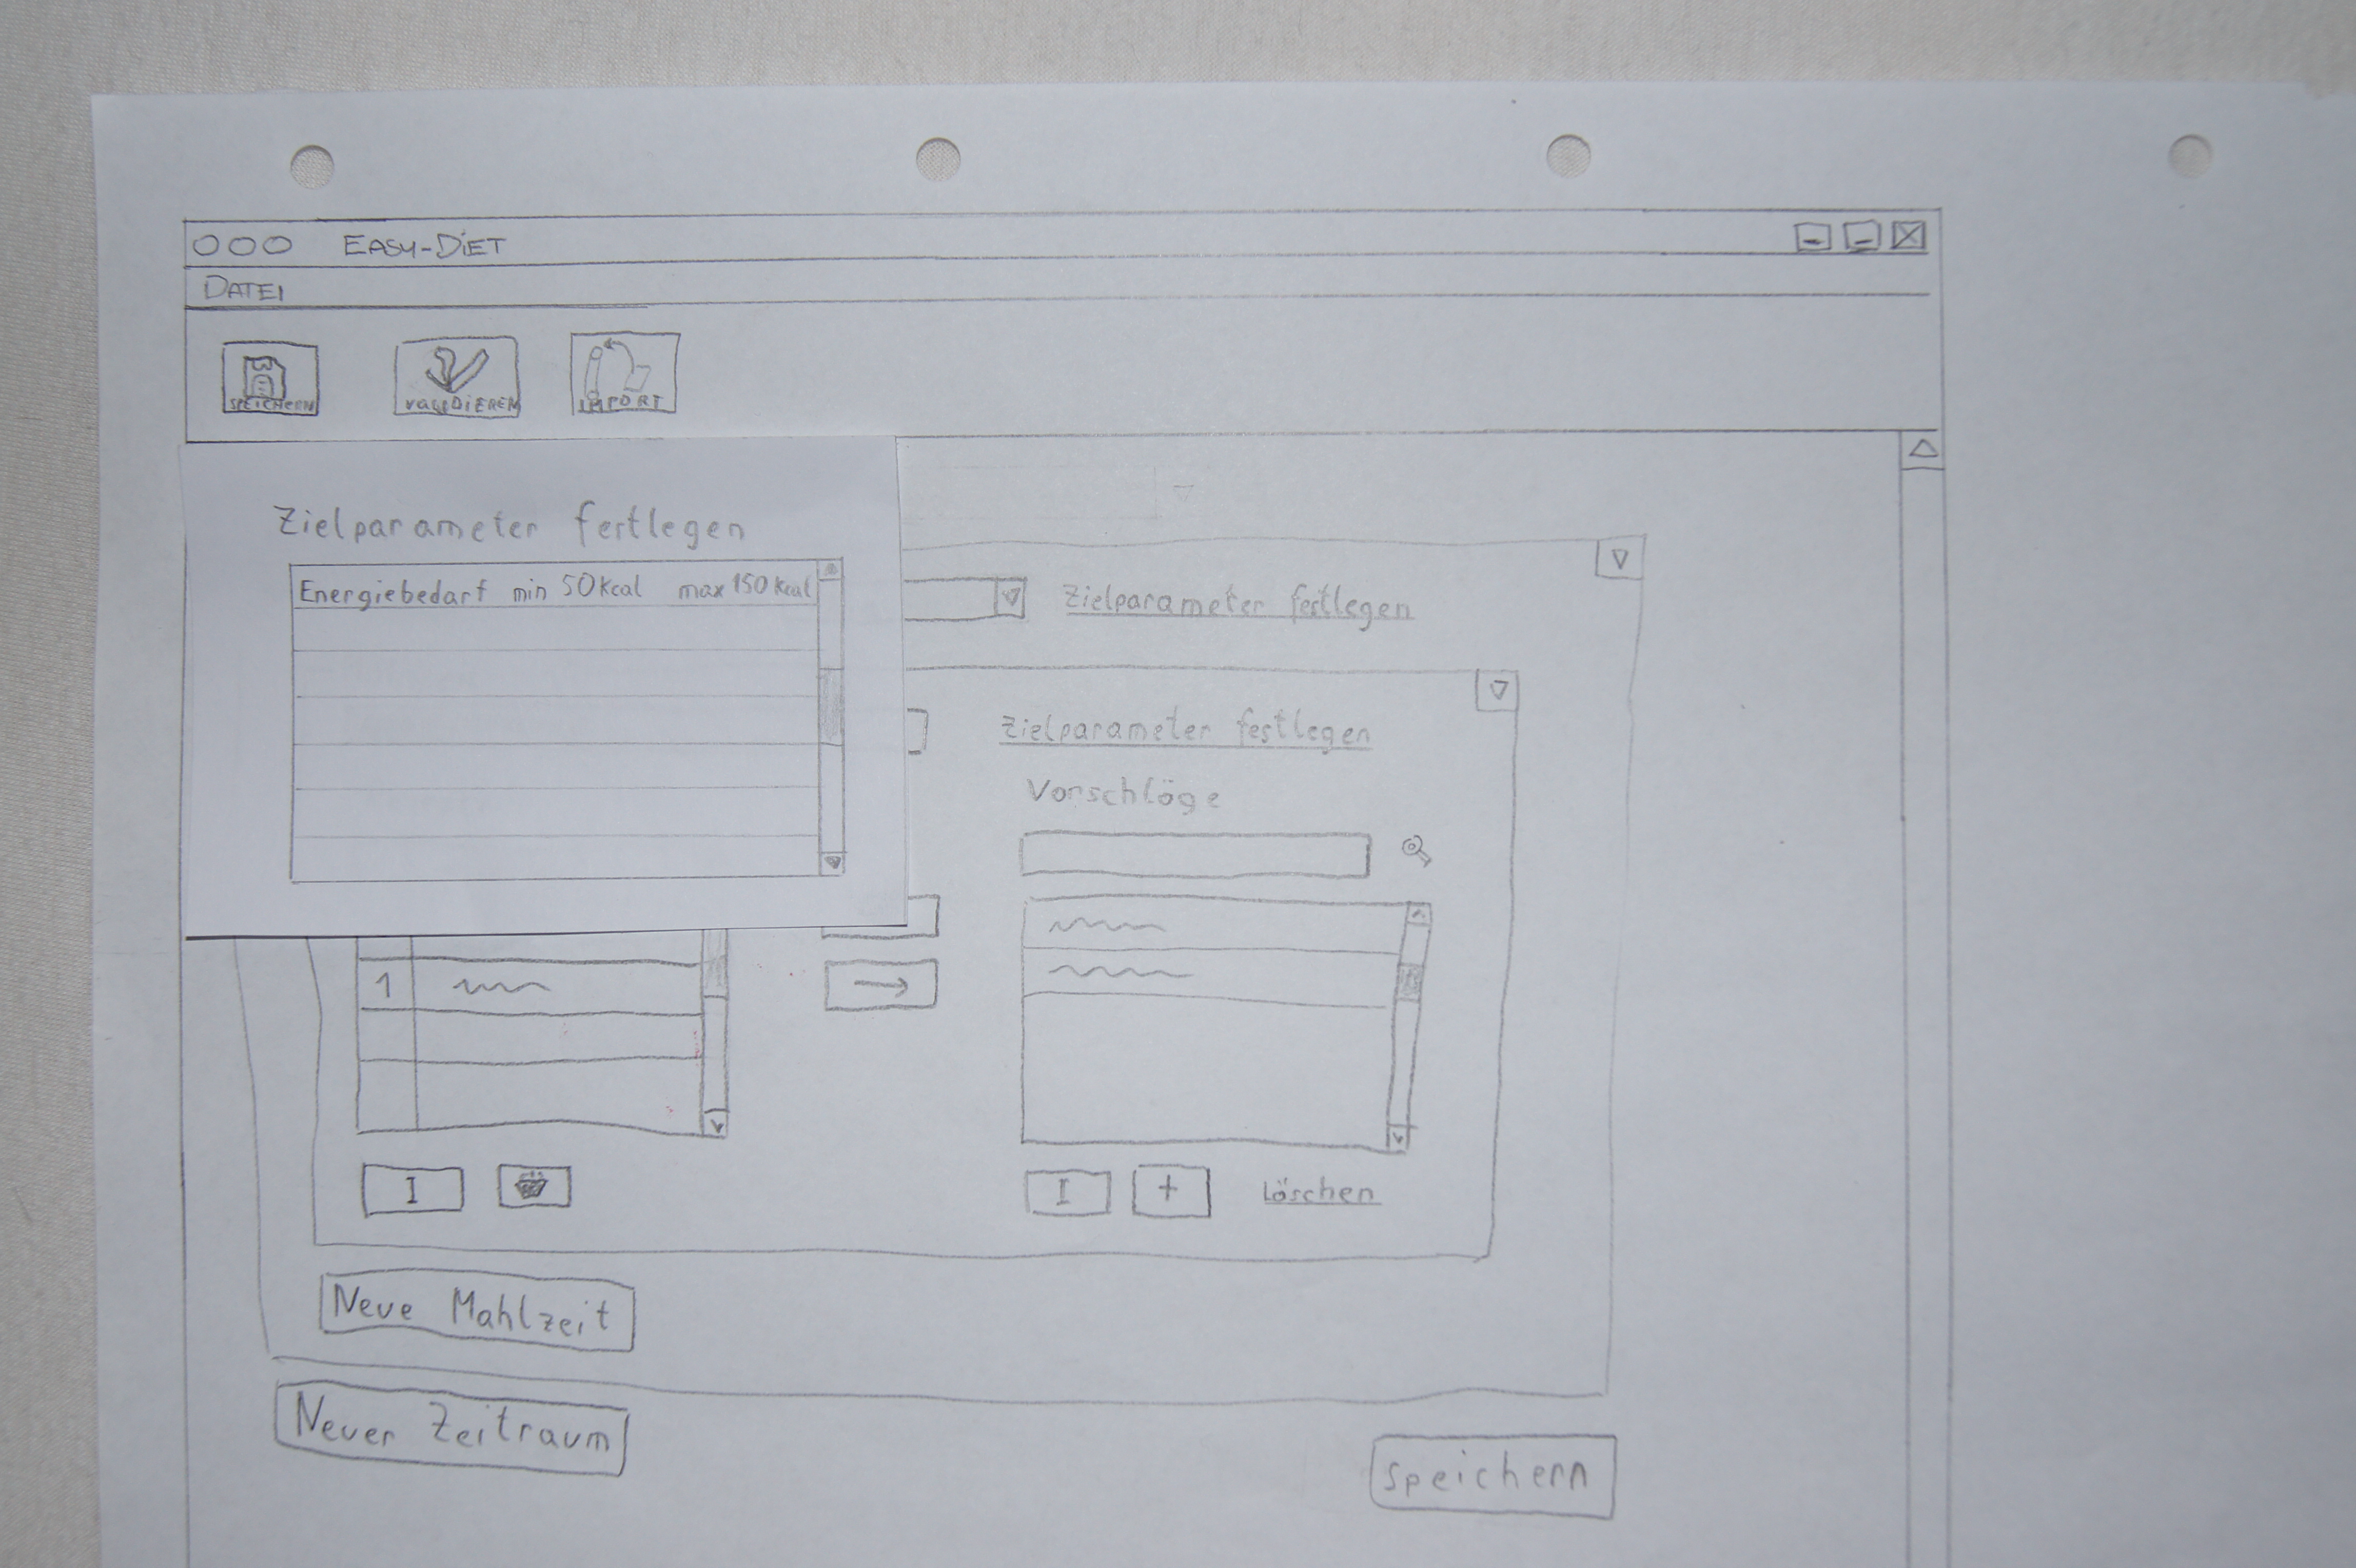 EASY-DIET
DATEI
SPEICHERN
VALIDIEREN
IMPORT
Zielparameter festlegen
Energiebedarf min 50 Kcal max 150 Kcal
Zielparameter festlegen
Zielparameter festlegen
Vorschläge
1
I
I
+
Löschen
Neue Mahlzeit
Neuer Zeitraum
Speichern